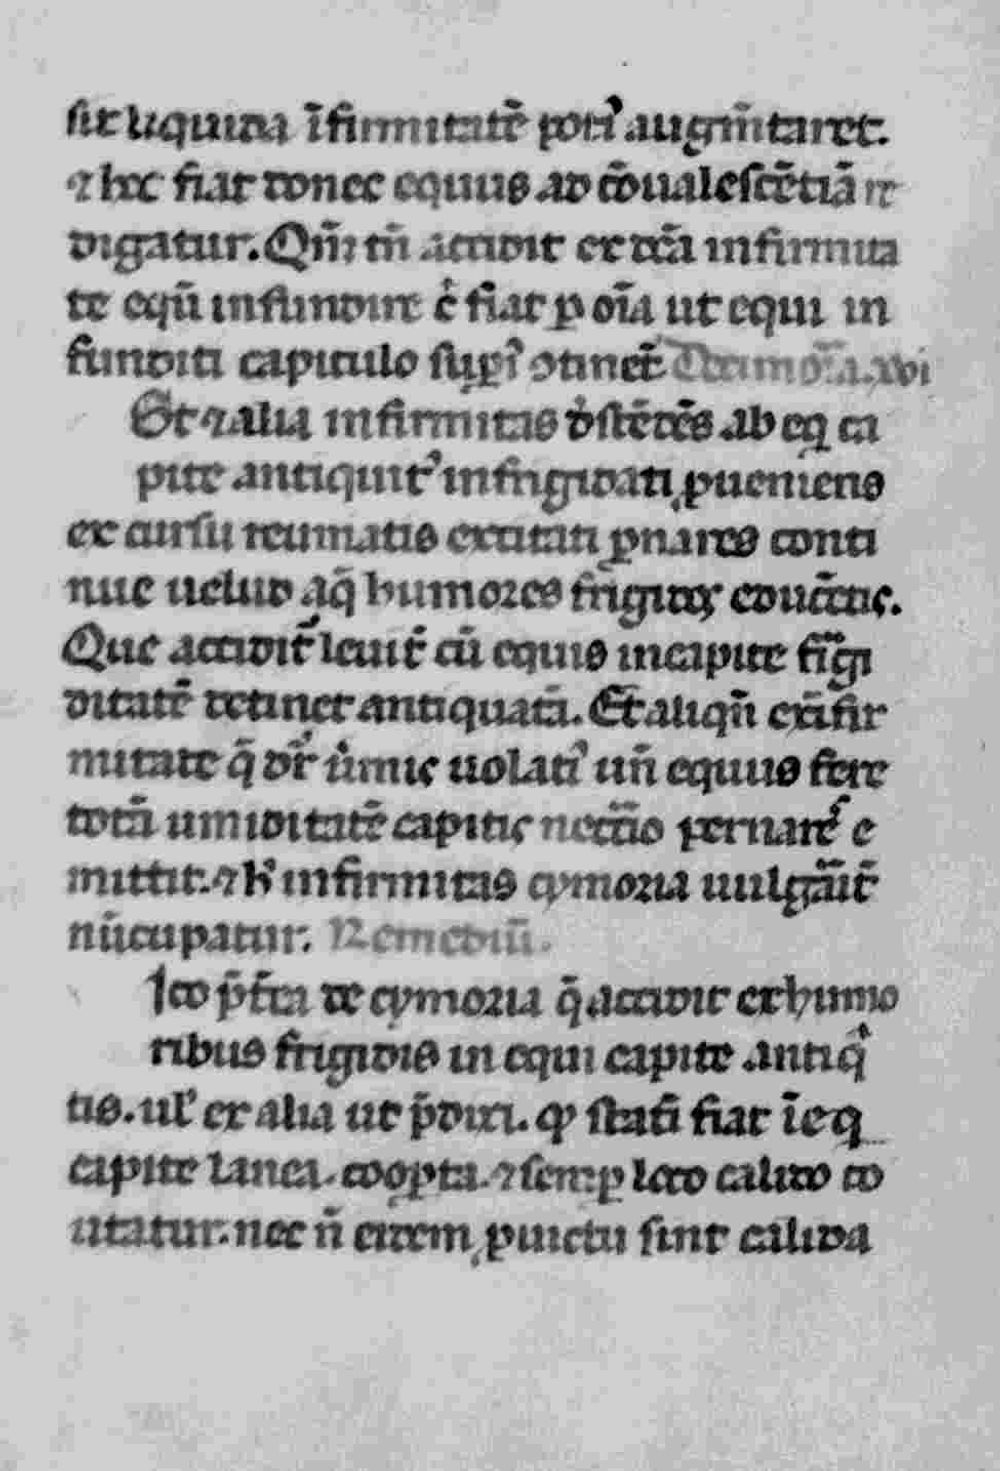 sit liquida īfirmitatē poti᾽ augm̄taret.
⁊ hec fiat donec equus ad cōualescētiā re
digatur. Qn̄ tn̄ accidit ex dc̄a infirmita
te eqū infundire c̄ fiat ꝑ oīa ut equi in
funditi capitulo suꝑi᾽ ꝯtinet᷑ De cimora. xvi
Est ⁊ alia infirmitas d᷑stēdēs ab eq ca
pite antiquit᾽ infrigidati, ꝓueniens
ex cursu reumatis excitati ꝑ nares conti
nue uelud aq̄ humores frigidos educētis.
Que accidit leuit᷑ cū equus in capite frīgi
ditatē retinet antiquatā. Et aliqn̄ ex ī fir
mitate q̄ dr̄ u᷑mis uolati᾽ un̄ equus fere
totā umiditatē capitis per nares e
mittit. ⁊ h᾽ infirmitas cymoria uulgāit᷑
nūcupatur. Remediū.
de cymoria q̄ accidit ex humo
ribus frigidis in equi capite antiq̄
tis. ul᾽ ex alia ut p̄dixi. ꝙ statī fiat ī eq
capite lanea. cooꝑta. ⁊ semꝑ loco calido co
utatur. nec n̄ eidem, ꝓ uictu sint calida